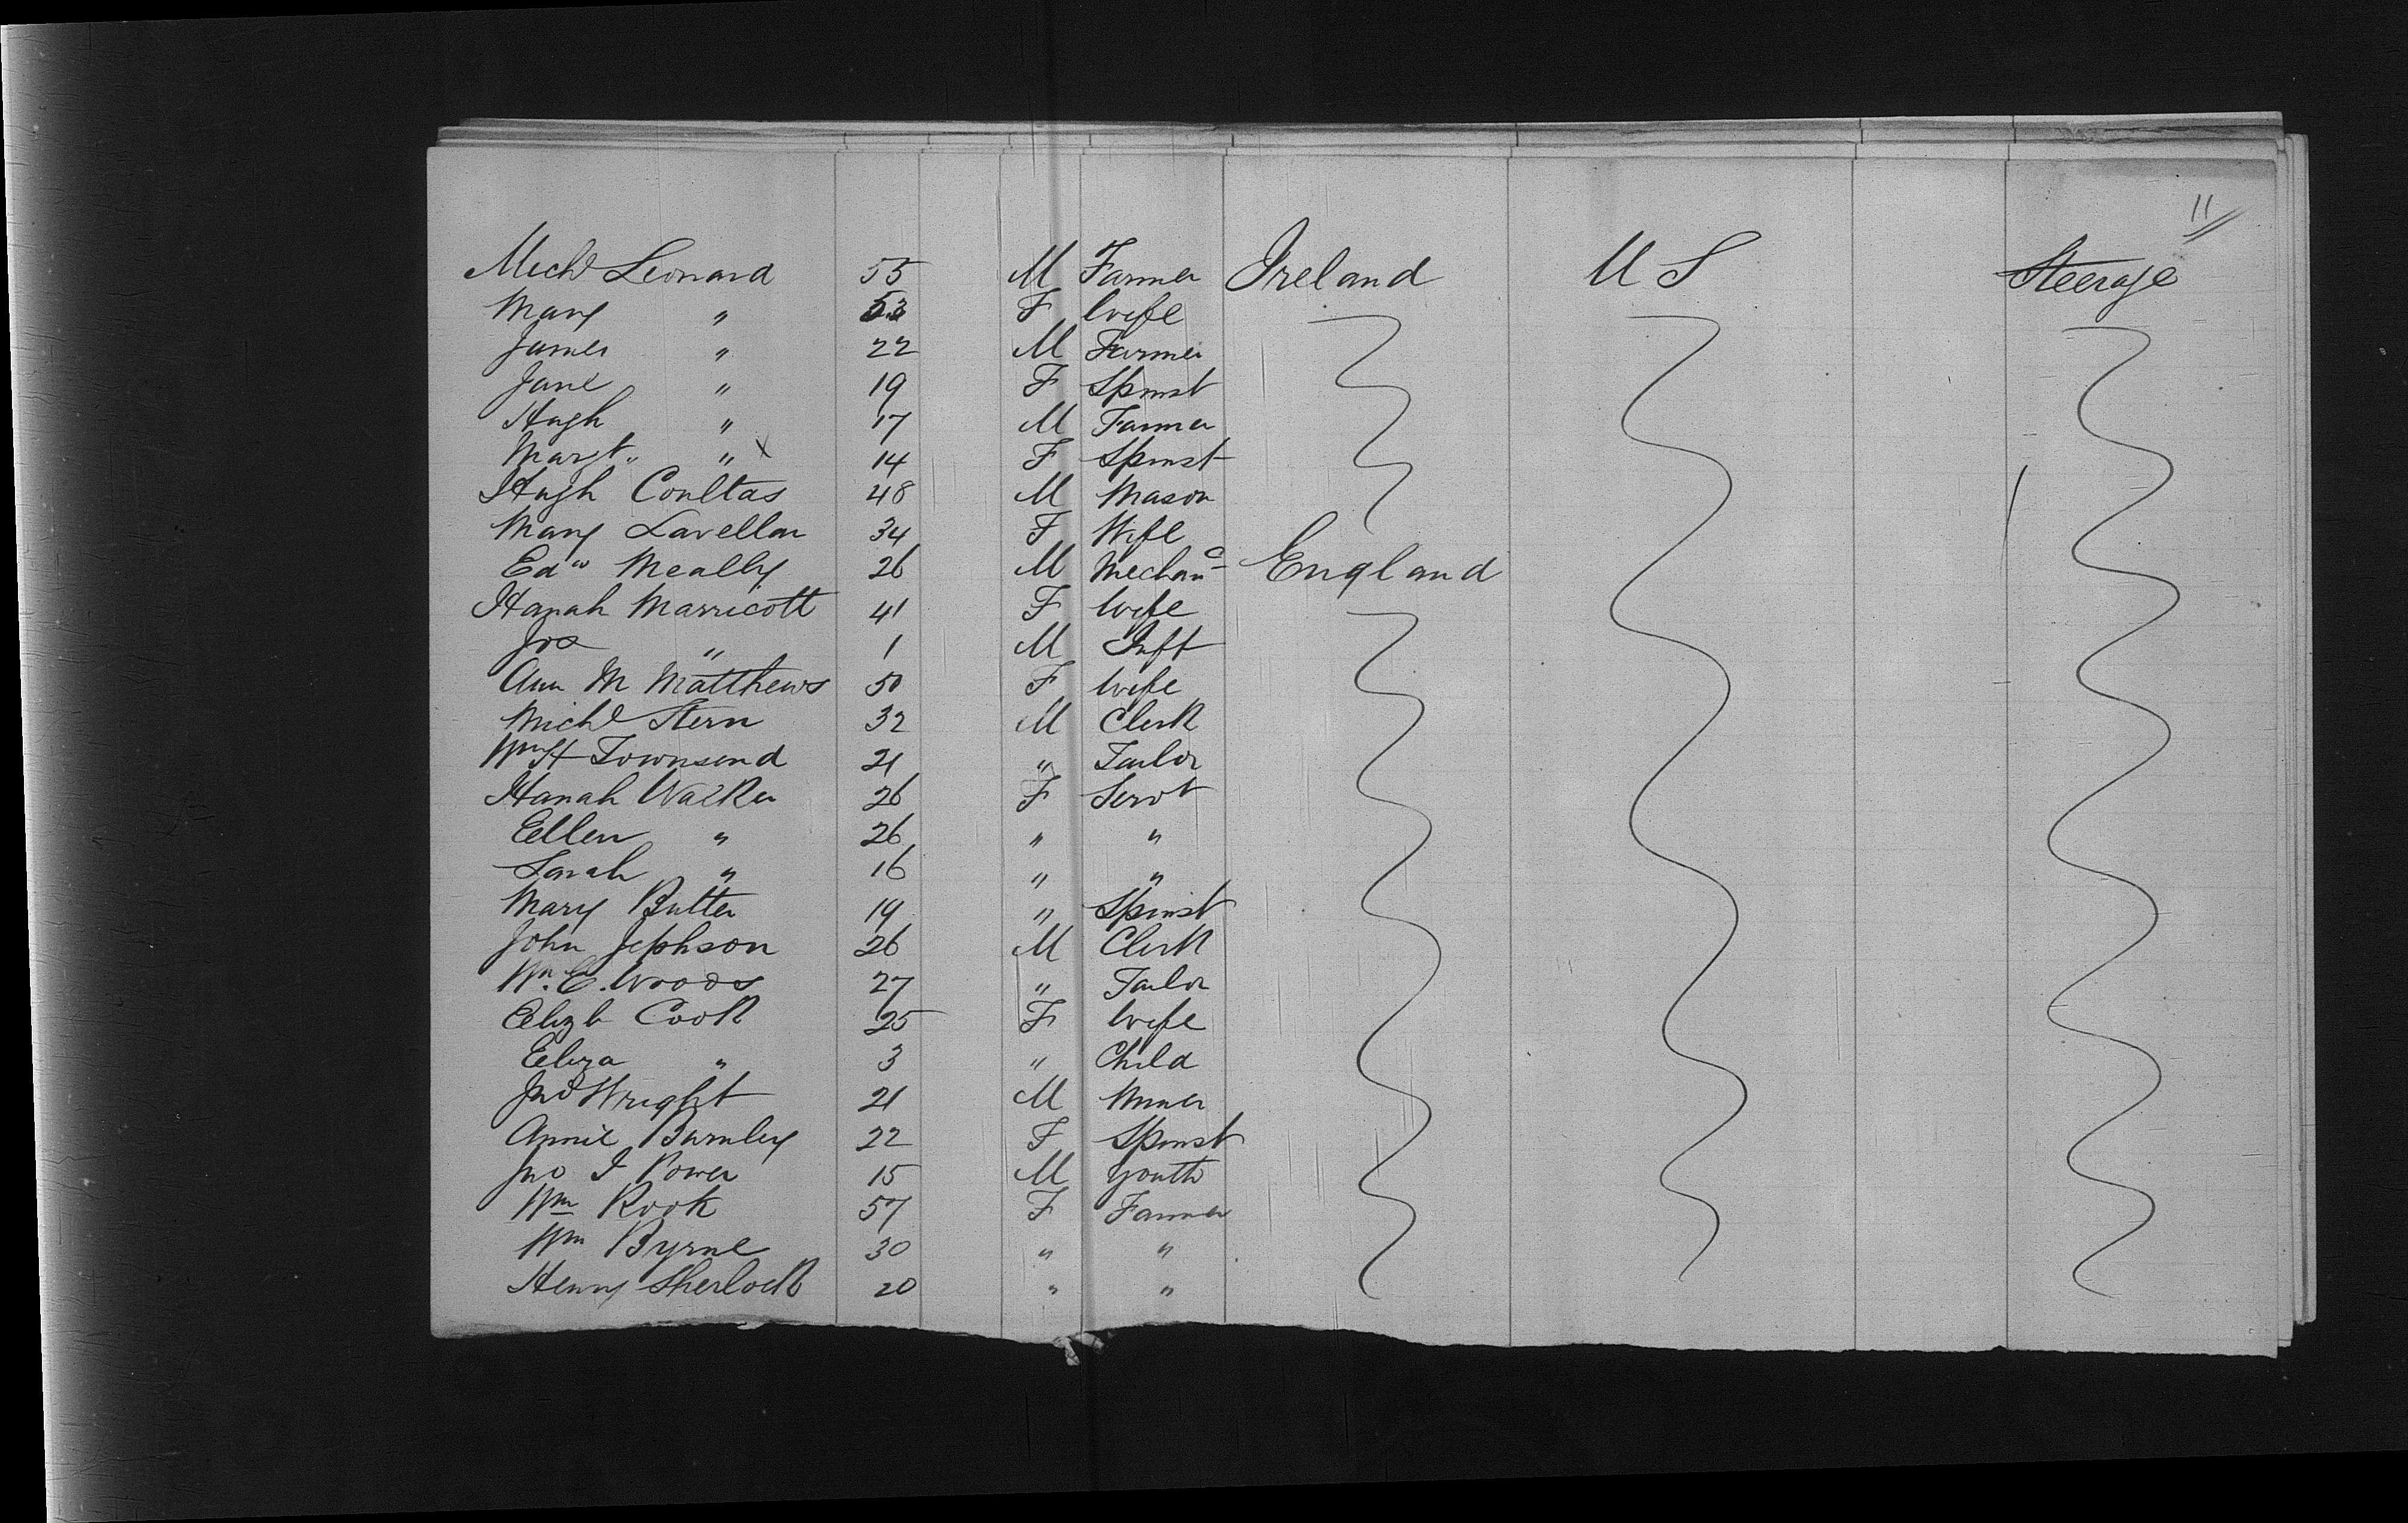 11
Michl Leonard 55 M Farmer Ireland U S Steerage
Mary " 53 F Wife
James " 22 M Farmer
Jane " 19 F Spinst
Hugh " 17 M Farmer
Margt " 14 F Spinst
Hugh Coultas 48 M Mason
Mary Lavellan 34 F Wife
Edw Meally 26 M Mechanc England
Hanah Marricott 41 F Wife
Jos " 1 M Inft
Ann M Matthews 50 F Wife
Michl Stern 32 M Clerk
Wm H Townsend 21 " Tailor
Hanah Walker 26 F Servt
Ellen " 26 " "
Sarah " 16 " "
Mary Butter 19 " Spinst
John Jephson 26 M Clerk
Wm. E. Woods 27 " Tailor
Elizb Cook 25 F Wife
Eliza " 3 " Child
Jno Wright 21 M Miner
Annie Barnley 22 F Spinst
Jno J Power 15 M Youth
Wm Rook 57 F Farmer
Wm Byrne 30 " "
Henry Sherlock 20 " "